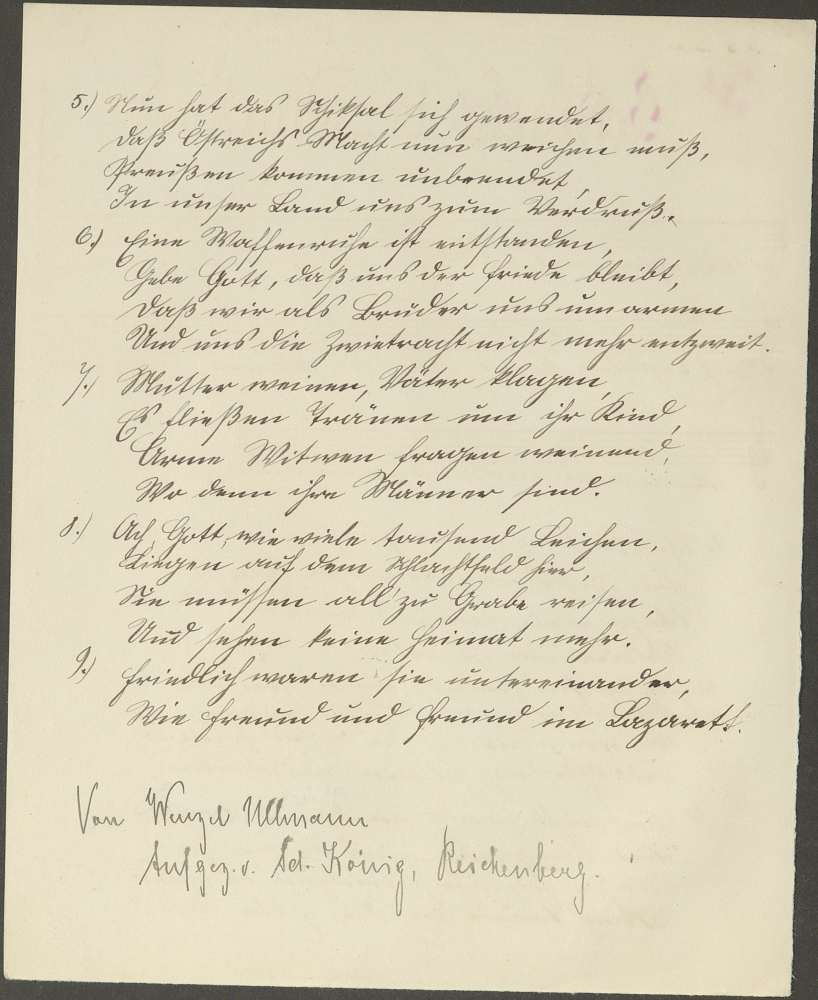 5.) Nun hat das Schiksal sich gewendet,
Daß Östreichs Macht nun weichen muß,
Preußen kommen unbeendet,
In unser Land uns zum Verdruß.
6.) Eine Waffenruhe ist entstanden,
Gebe Gott, daß uns der Friede bleibt,
Daß wir als Brüder uns umarmen
Und uns die Zwietracht nicht mehr entzweit.
7.) Mütter weinen, Väter klagen,
Es fließen Tränen um ihr Kind,
Arme Witwen fragen weinend,
Wo denn ihre Männer sind.
8.) Ach, Gott, wie viele tausend Leichen,
Liegen auf dem Schlachtfeld hier,
Sie müssen all' zu Grabe reisen,
Und sehen keine Heimat mehr.
9.) Friedlich waren sie untereinander,
Wie Freund und Freund im Lazarett.
Von Wenzel Ullmann
Aufgez. v. Ad. König, Reichenberg.